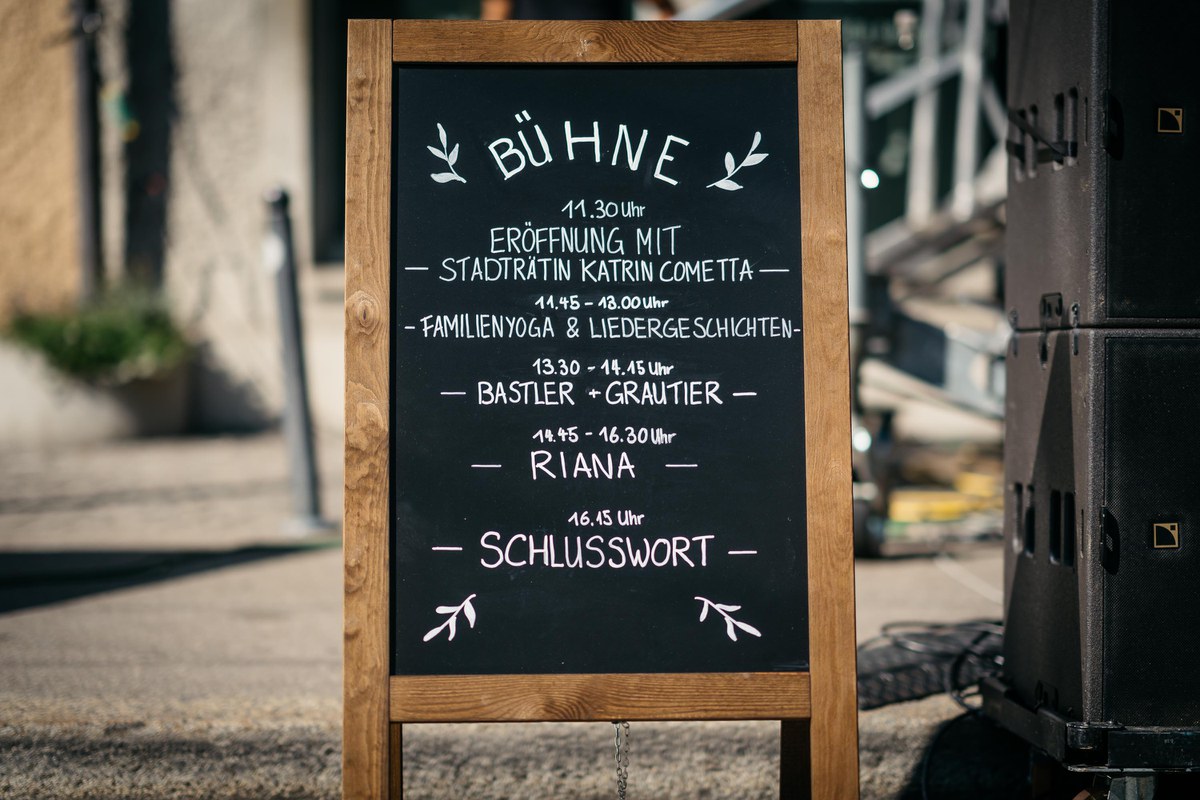 BÜHNE
11.30 Uhr
ERÖFFNUNG MIT
— STADTRÄTIN KATRIN COMETTA —
11.45 - 13.00 Uhr
- FAMILIENYOGA & LIEDERGESCHICHTEN -
13.30 - 14.15 Uhr
— BASTLER + GRAUTIER —
14.45 - 16.30 Uhr
— RIANA —
16.15 Uhr
— SCHLUSSWORT —